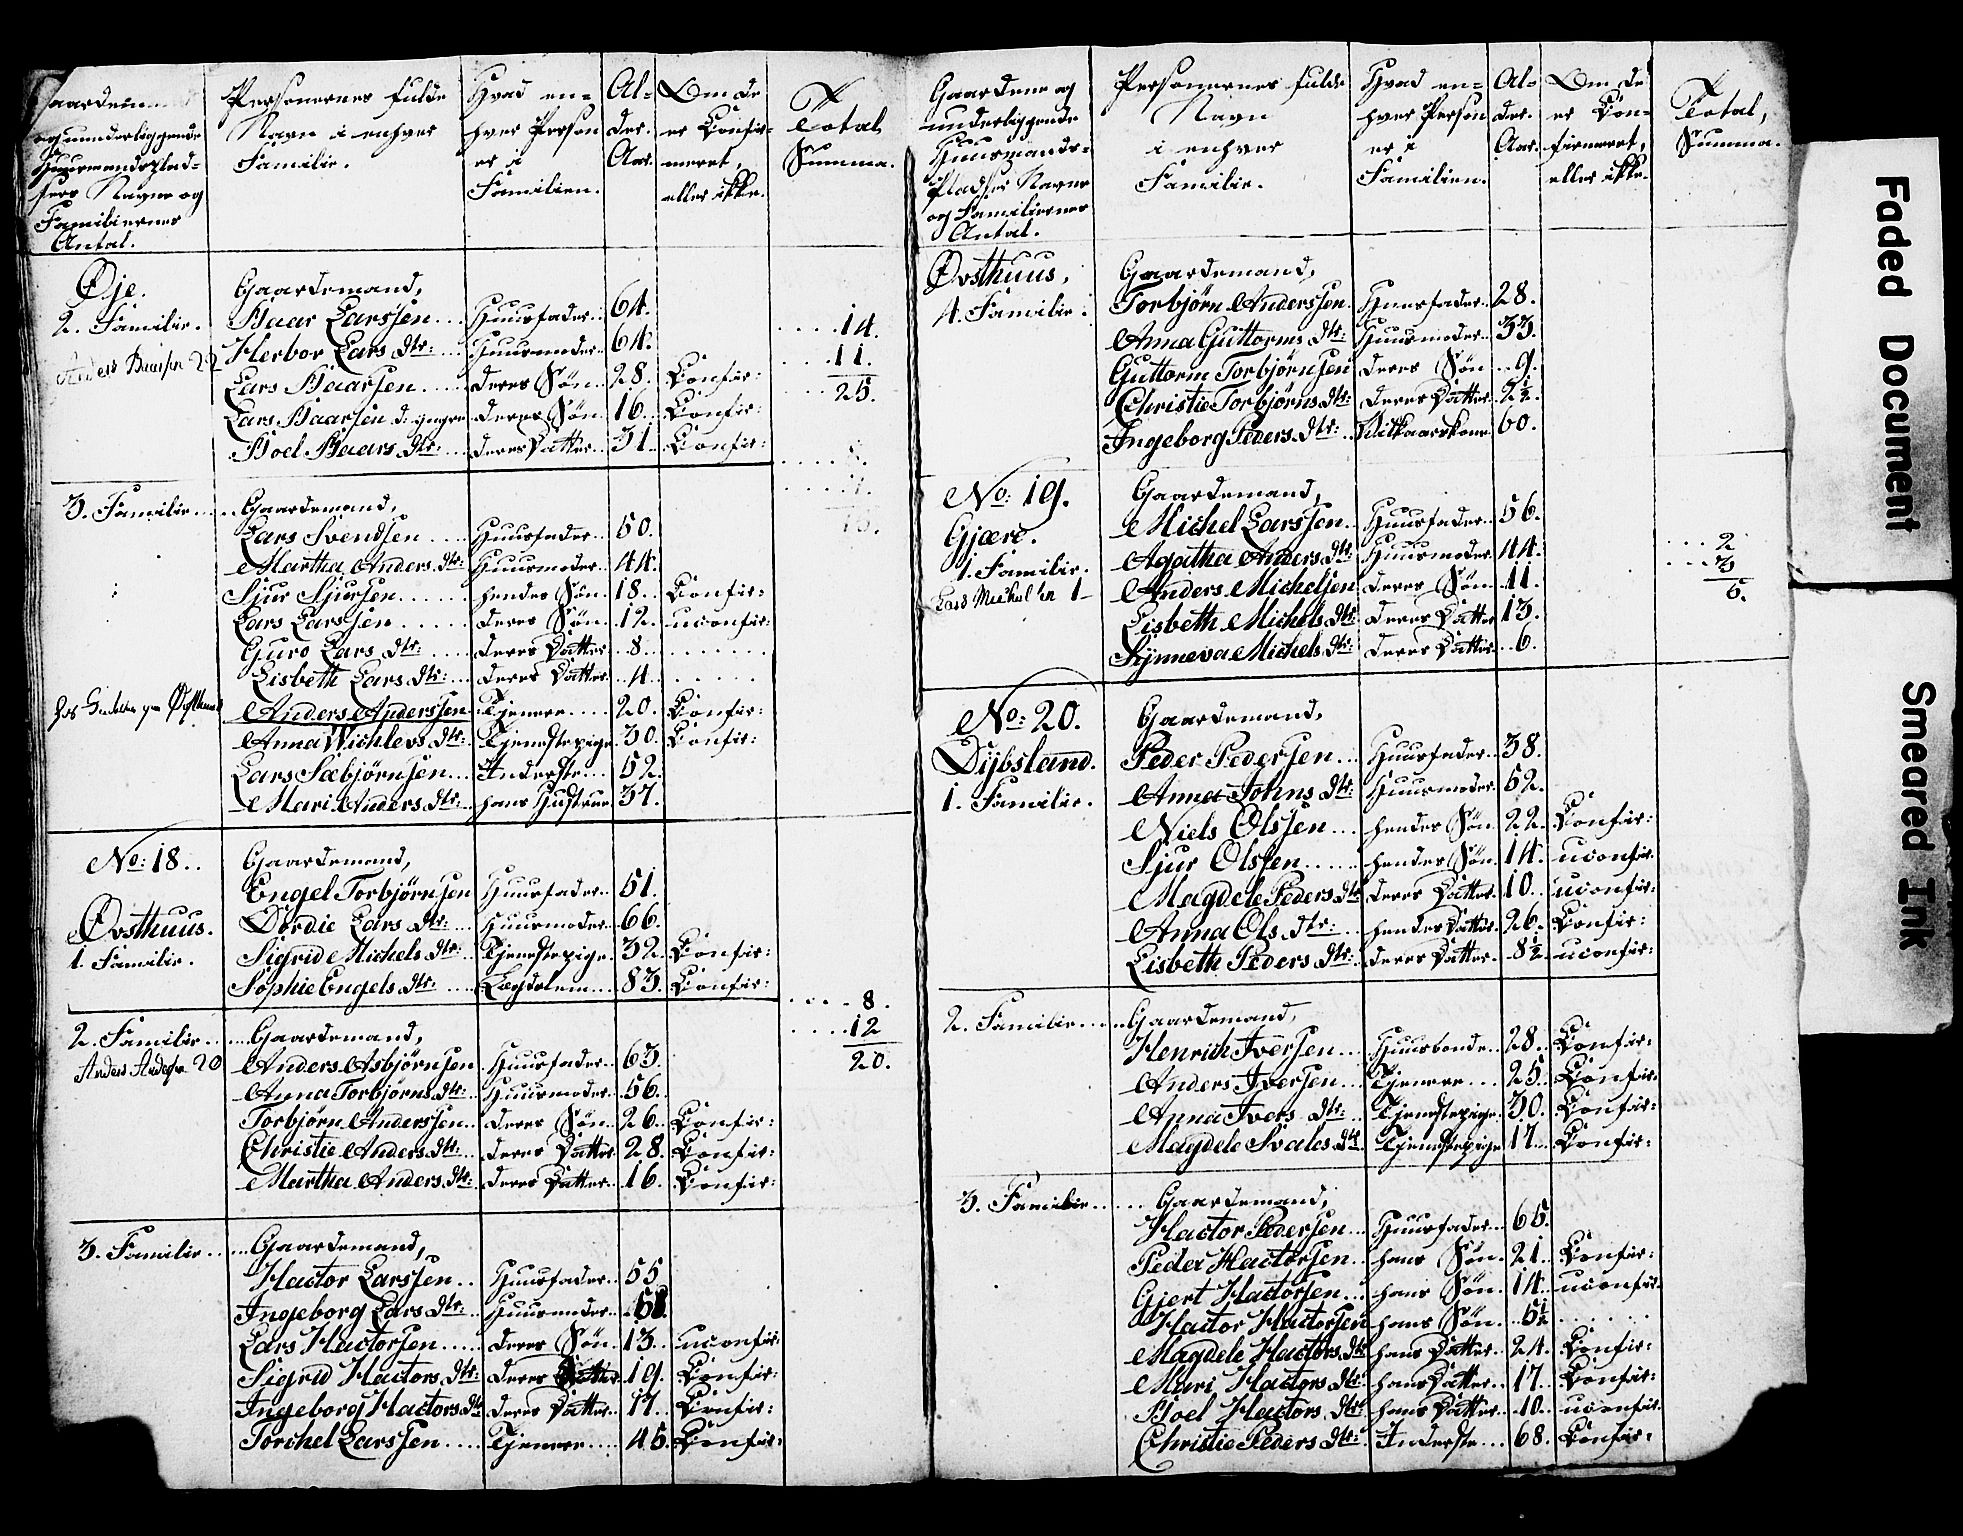 Gaardenes
og underliggende
Huusmandsplad-
sers Navne og
Familiernes
Antal.
Personernes fulde
Navn i enhver
Familie.
Hvad en-
hver Person
er i
Familien.
Al-
der.
Aar.
Om de
er Confir-
meret,
eller ikke.
Total
Summa.
Øje.
2. Familie.
Gaardemand,
Baar Larssen.... Huusfader.. 64.
Herbor Lars Dtr: ... Huusmoder.. 64.
Lars Baarsen..... deres Søn.. 28. Confir:
Lars Baarsen d: yngre deres Søn.. 16. Confir:
Boel Baars Dtr: ... deres Datter.. 31. Confir:
....14.
....11.
...25.
3. Familie..... Gaardemand,
Lars Svendsen .... Huusfader.. 50.
Martha Anders Dtr: Huusmoder.. 44.
Sjur Sjursen...... hendes Søn. 18.. Confir:
Lars Larssen ..... deres Søn. 12. uconfir:
Guro Lars Dtr: .... deres Datter 8.
Lisbeth Lars Dtr: ... deres Datter 4.
Anders Anderssen.. Tjenere.... 20. Confir:
Anna Wichlevs Dtr: Tjenestepige 30. Confir:
Lars Sæbjørnsen... Inderste... 52.
Mari Anders Dtr: ... hans Hustrue 37.
No: 18.
Østhuus.
1. Familie.
Gaardemand,
Engel Torbjørnsen Huusfader.. 51.
Dordie Lars Dtr: ... Huusmoder.. 66.
Sigrid Michels Dtr: Tjenestepige 32. Confir:
Sophie Engels Dtr: ... Lægdslem... 83. Confir:
....8.
....12
20.
2. Familie
Anders Andersen 20
.....Gaardemand,
Anders Asbjørnsen Huusfader.. 63.
Anna Torbjørns Dtr: Huusmoder.. 56.
Torbjørn Anderssen.. deres Søn. 26. Confir:
Christie Anders Dtr: deres Datter 28. Confir:
Martha Anders Dtr: deres Datter.. 16. Confir:
3. Familie.. ....Gaardemand,
Hactor Larssen.. Huusfader.. 55
Ingeborg Lars Dtr: Huusmoder..
Lars Hactorsen..... deres Søn. 13. uconfir:
Sigrid Hactors Dtr: deres Datter 19. Confir:
Ingeborg Hactors Dtr deres Datter.. 17. Confir:
Torchel Larssen .... Tjenere.... 45. Confir:
Gaardene og
underliggende
Huusmands-
Pladser Navne
og Familiernes
Antal.
Personernes fulde
Navn
i enhver
Familie.
Hvad en-
hver Person
er i
Familien.
Al-
der.
Aar.
Om de
er Con-
firmeret,
eller ikke.
Total,
Summa.
Østhuus,
4. Familie:
Gaardemand,
Torbjørn Anderssen. Huusfader.. 28.
Anna Guttorms Dtr: Huusmoder.. 33.
Guttorm Torbjørnsen deres Søn ..9.
Christie Torbjørns Dtr: deres Datter 2½.
Ingeborg Peders Dtr: .. Vilkaarskone 60.
No: 19.
Gjære.
1. Familie.
Lars Michelsen 1
Gaardemand,
Michel Larssen.. Huusfader.. 56.
Agatha Anders Dtr: Huusmoder 44.
Anders Michelsen deres Søn. 11.
Lisbeth Michels Dtr: deres Datter 13.
Synneva Michels Dtr: deres Datter.. 6.
....2
....3
5.
No: 20.
Dybsland.
1. Familie.
Gaardemand,
Peder Pedersen... Huusfader.. 38.
Anna Johns Dtr: Huusmoder 52.
Niels Olssen... hendes Søn. 22. Confir:
Sjur Olssen..... hendes Søn. 14. uconfir
Magdele Peders Dtr deres Datter. 10. uconfir:
Anna Ols Dtr: ... hendes Datter. 26. Confir:
Lisbeth Peders Dtr: deres Datter. 8½ uconfir:
2. Familie.....Gaardemand,
Henrich Iversen... Huusbonde.. 28.. Confir:
Anders Iversen... Tjenere... 25. Confir:
Anna Ivers Dtr: Tjenestepige. 30. Confir:
Magdele Svales Dtr Tjenestepige 17... Confir:
3. Familie..... Gaardemand,
Hactor Pedersen... Huusfader.. 65.
Peder Hactorsen... hans Søn. 21. Confir:
Gjert Hactorsen... hans Søn. 14. uconfir:
Hactor Hactorsen hans Søn. 5½
Magdele Hactors Dtr hans Datter.. 24. Confir:
Mari Hactors Dtr: hans Datter.. 17.. Confir:
Boel Hactors Dtr: hans Datter.. 10.. uconfir:
Christie Peders Dtr: Inderste... 68. Confir:
Faded Document
Smeared Ink